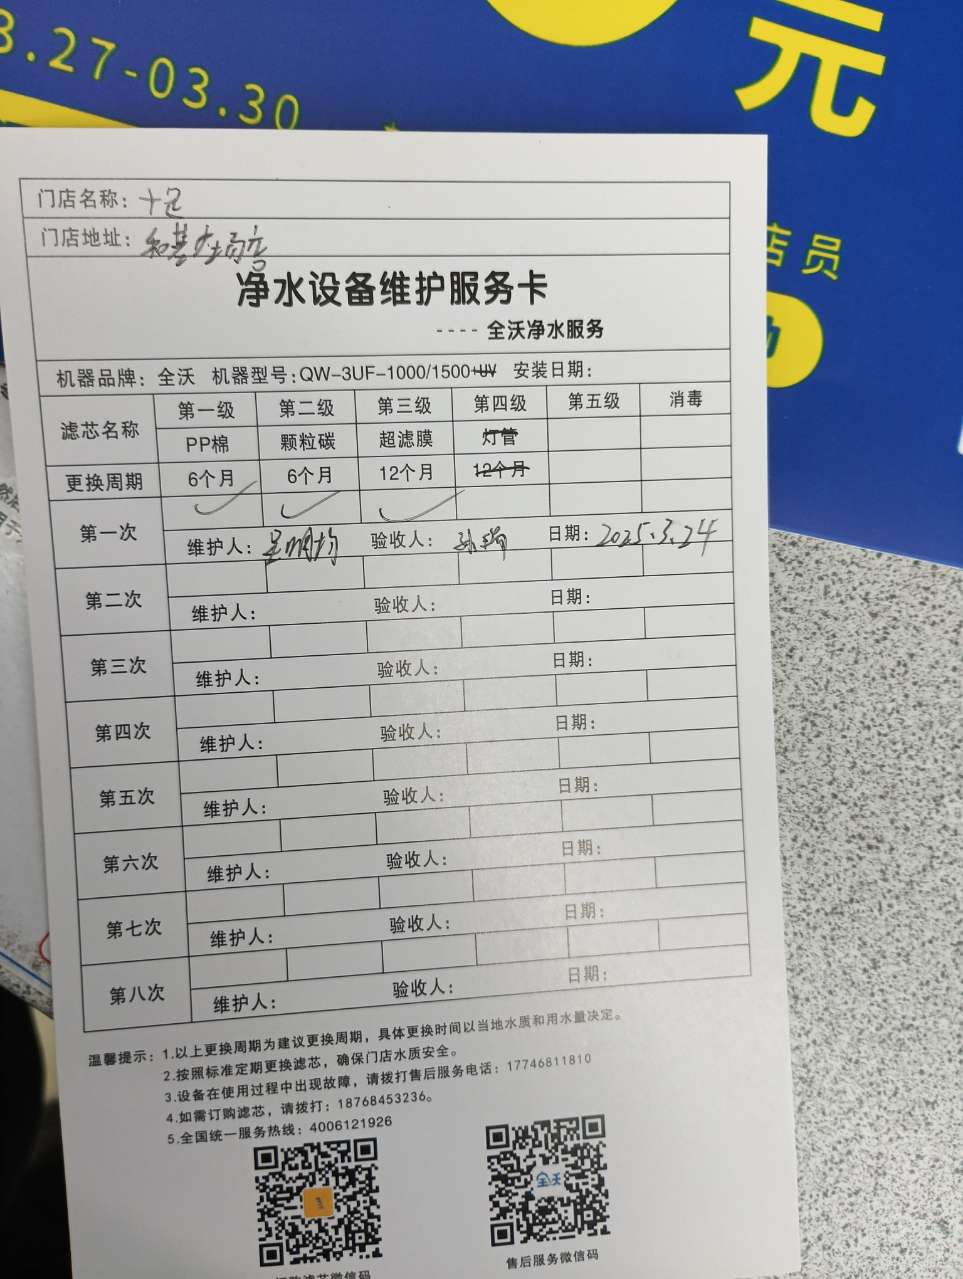 3.27-03.30
元
店员
门店名称：
门店地址：
净水设备维护服务卡
---- 全沃净水服务
机器品牌：全沃 机器型号：QW-3UF-1000/1500+UV 安装日期：
滤芯名称 第一级 第二级 第三级 第四级 第五级 消毒
PP棉 颗粒碳 超滤膜 灯管
更换周期 6个月 6个月 12个月 12个月
第一次
维护人： 验收人： 日期：2025.3.24
第二次
维护人： 验收人： 日期：
第三次
维护人： 验收人： 日期：
第四次
维护人： 验收人： 日期：
第五次
维护人： 验收人： 日期：
第六次
维护人： 验收人： 日期：
第七次
维护人： 验收人： 日期：
第八次
维护人： 验收人： 日期：
温馨提示：1.以上更换周期为建议更换周期，具体更换时间以当地水质和用水量决定。
2.按照标准定期更换滤芯，确保门店水质安全。
3.设备在使用过程中出现故障，请拨打售后服务电话：17746811810
4.如需订购滤芯，请拨打：18768453236。
5.全国统一服务热线：4006121926
全沃
售后服务微信码